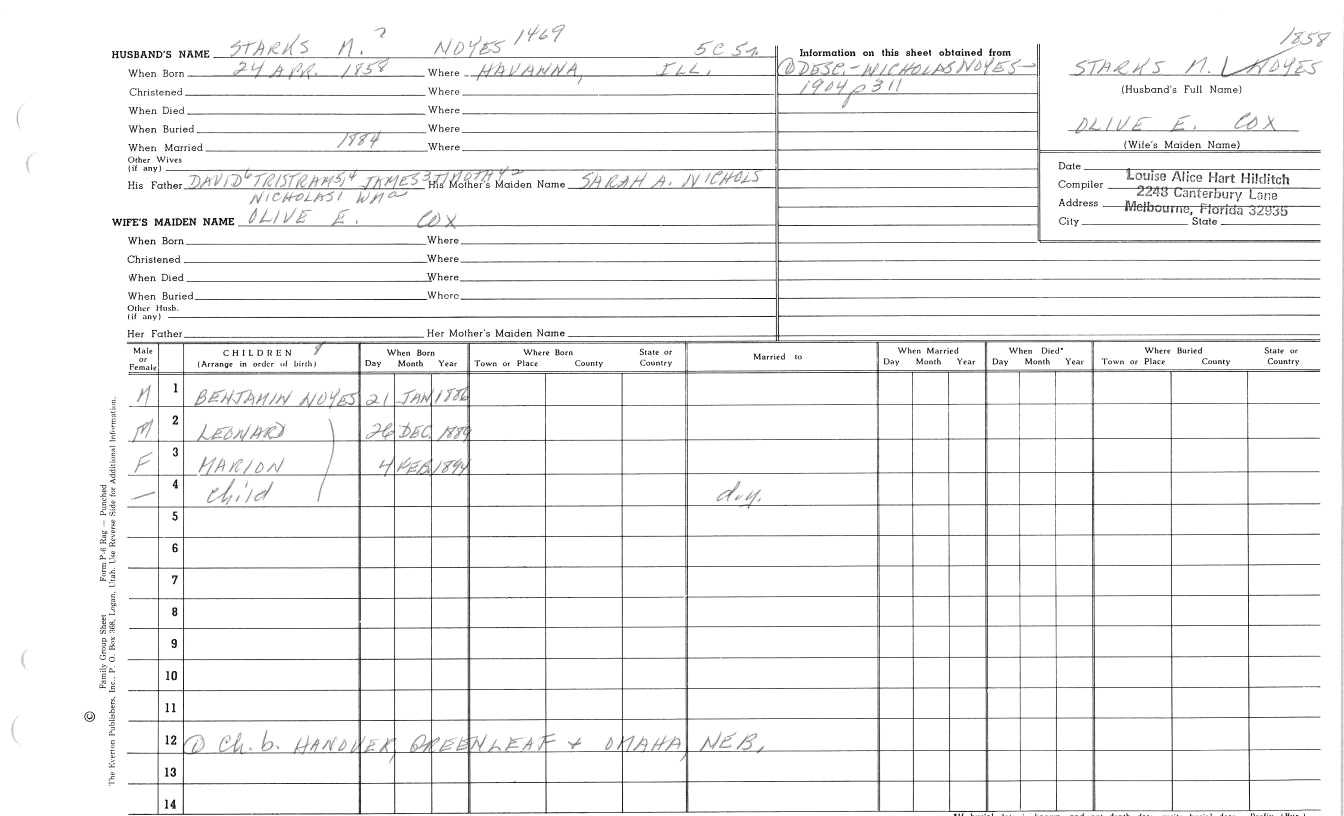 1858
HUSBAND'S NAME STARKS M. 7 NOYES 1469 5C Sn.
When Born 24 APR. 1858 Where HAVANNA, ILL.
Christened Where
When Died Where
When Buried Where
When Married 1884 Where
Other Wives
(if any)
His Father DAVID 6 TRISTRAM 5,4 JAMES 3 TIMOTHY 2 His Mother's Maiden Name SARAH A. NICHOLS
NICHOLAS 1 Wm a
WIFE'S MAIDEN NAME OLIVE E. COX
When Born Where
Christened Where
When Died Where
When Buried Where
Other Husb.
(if any)
Her Father Her Mother's Maiden Name
Information on this sheet obtained from
① DESC. - NICHOLAS NOYES -
1904 p 311
STARKS M. NOYES
(Husband's Full Name)
OLIVE E. COX
(Wife's Maiden Name)
Date
Compiler Louise Alice Hart Hilditch
Address 2248 Canterbury Lane
Melbourne, Florida 32935
City State
Male or Female CHILDREN 8 (Arrange in order of birth) When Born Day Month Year Where Born Town or Place County State or Country Married to When Married Day Month Year When Died* Day Month Year Where Buried Town or Place County State or Country
M 1 BENJAMIN NOYES 21 JAN 1886
M 2 LEONARD 26 DEC. 1889
F 3 MARION 4 FEB. 1894
— 4 child d.y.
5
6
7
8
9
10
11
12 ① Ch. b. HANOVER, GREENLEAF + OMAHA, NEB.
13
14
© Family Group Sheet Form P-6 Rag — Punched
The Everton Publishers, Inc., P. O. Box 368, Logan, Utah. Use Reverse Side for Additional Information.